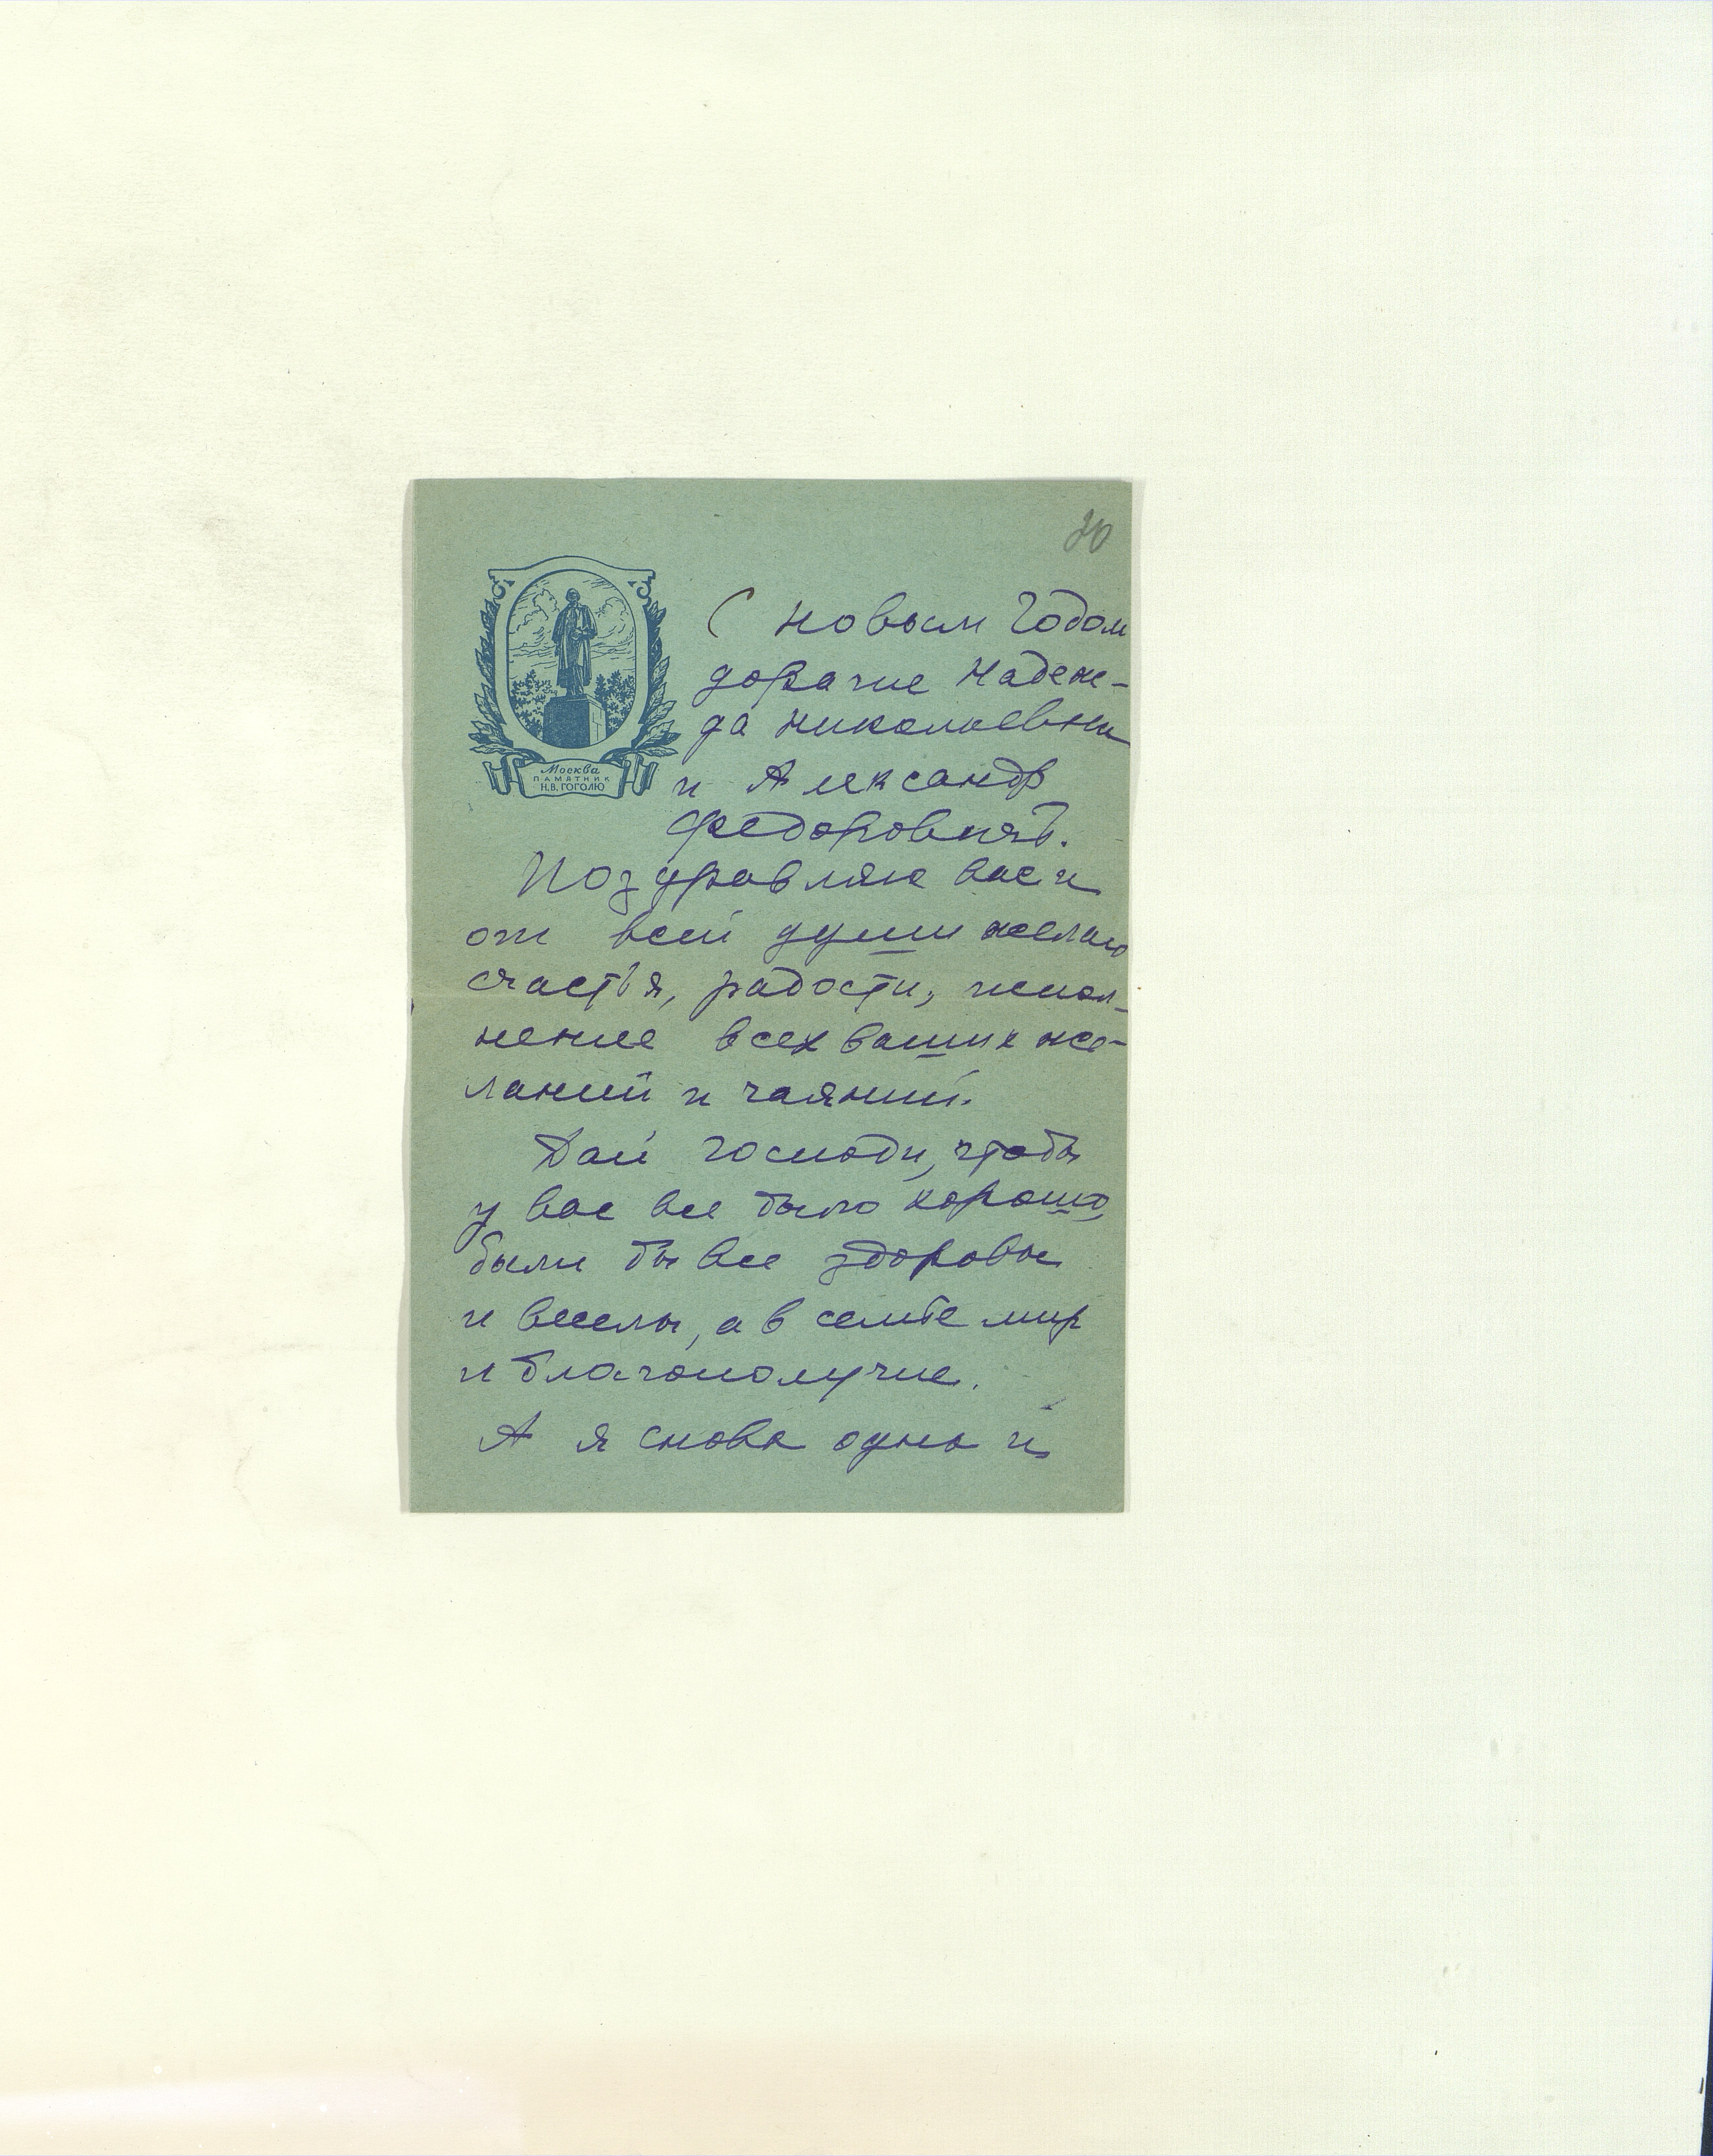 20
С новым Годом
дорагие Надеж-
да Николаевна
и Александр
Федорович.
Поздравляю вас и
от всей души желаю
счастья, радости, испол-
нение всех ваших же-
ланий и чаяний.
Дай господи, чтобы
у вас все было хорошо,
были бы все здоровы
и веселы, а в семье мир
и благополучие.
А я снова одна и
Москва
ПАМЯТНИК
Н.В. ГОГОЛЮ